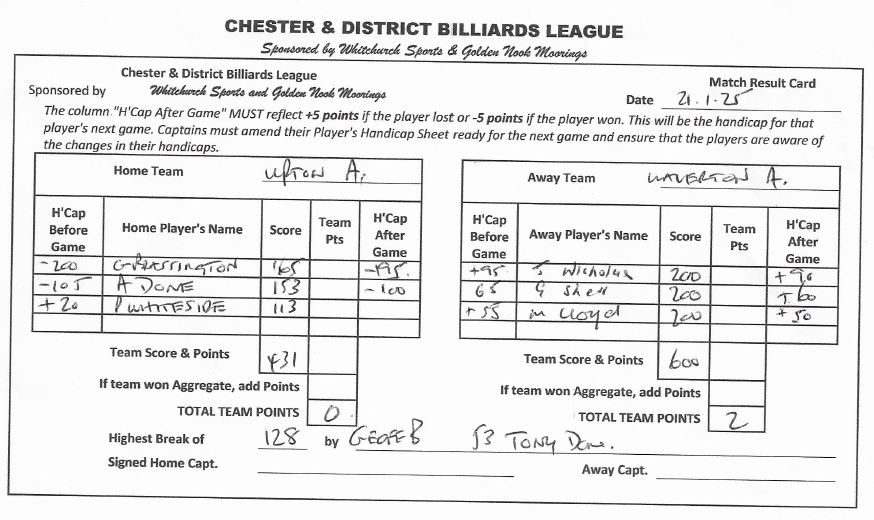 CHESTER & DISTRICT BILLIARDS LEAGUE
Sponsored by Whitchurch Sports & Golden Nook Moorings
Chester & District Billiards League
Match Result Card
Sponsored by Whitchurch Sports and Golden Nook Moorings
Date 21.1.25
The column "H'Cap After Game" MUST reflect +5 points if the player lost or -5 points if the player won. This will be the handicap for that
player's next game. Captains must amend their Player's Handicap Sheet ready for the next game and ensure that the players are aware of
the changes in their handicaps.
Home Team UPTON A.
H'Cap Before Game Home Player's Name Score Team Pts H'Cap After Game
-200 G BRASSINGTON 165 -195
-105 A DONE 153 -100
+20 P WHITESIDE 113
Team Score & Points 431
If team won Aggregate, add Points
TOTAL TEAM POINTS 0
Away Team WAVERTON A.
H'Cap Before Game Away Player's Name Score Team Pts H'Cap After Game
+95 Nicholas 200 +90
65 G Shell 200 +60
+55 M Lloyd 200 +50
Team Score & Points 600
If team won Aggregate, add Points
TOTAL TEAM POINTS 2
Highest Break of 128 by GEOFF B 53 TONY Done.
Signed Home Capt. Away Capt.